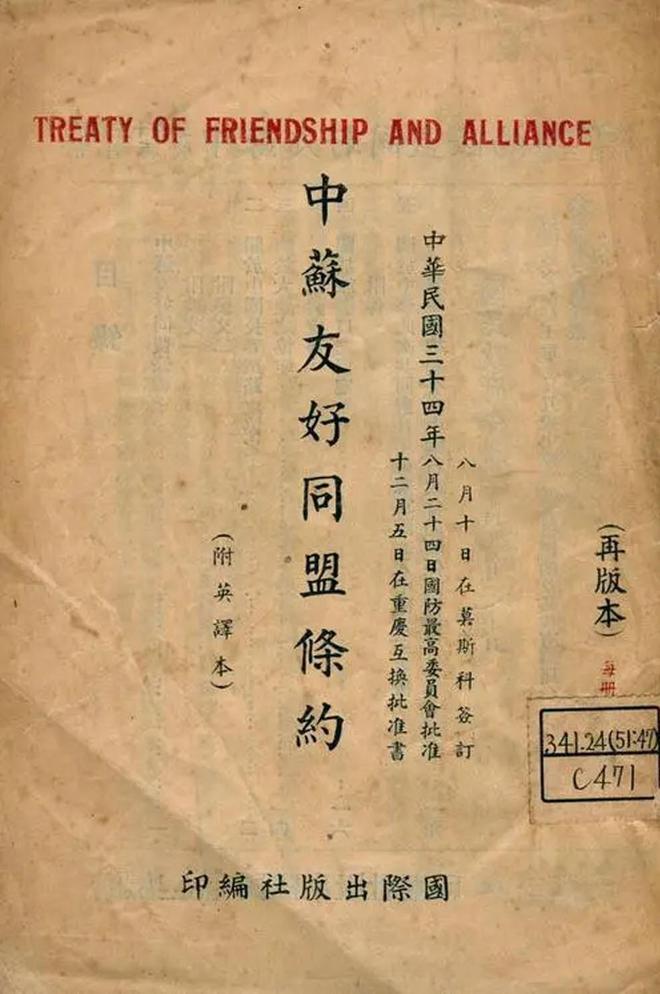 TREATY OF FRIENDSHIP AND ALLIANCE
(再版本)
每册
中華民國三十四年
八月十日在莫斯科簽訂
八月二十四日國防最高委員會批准
十二月五日在重慶互換批准書
中蘇友好同盟條約
(附英譯本)
341.24(51:47)
C471
國際出版社編印